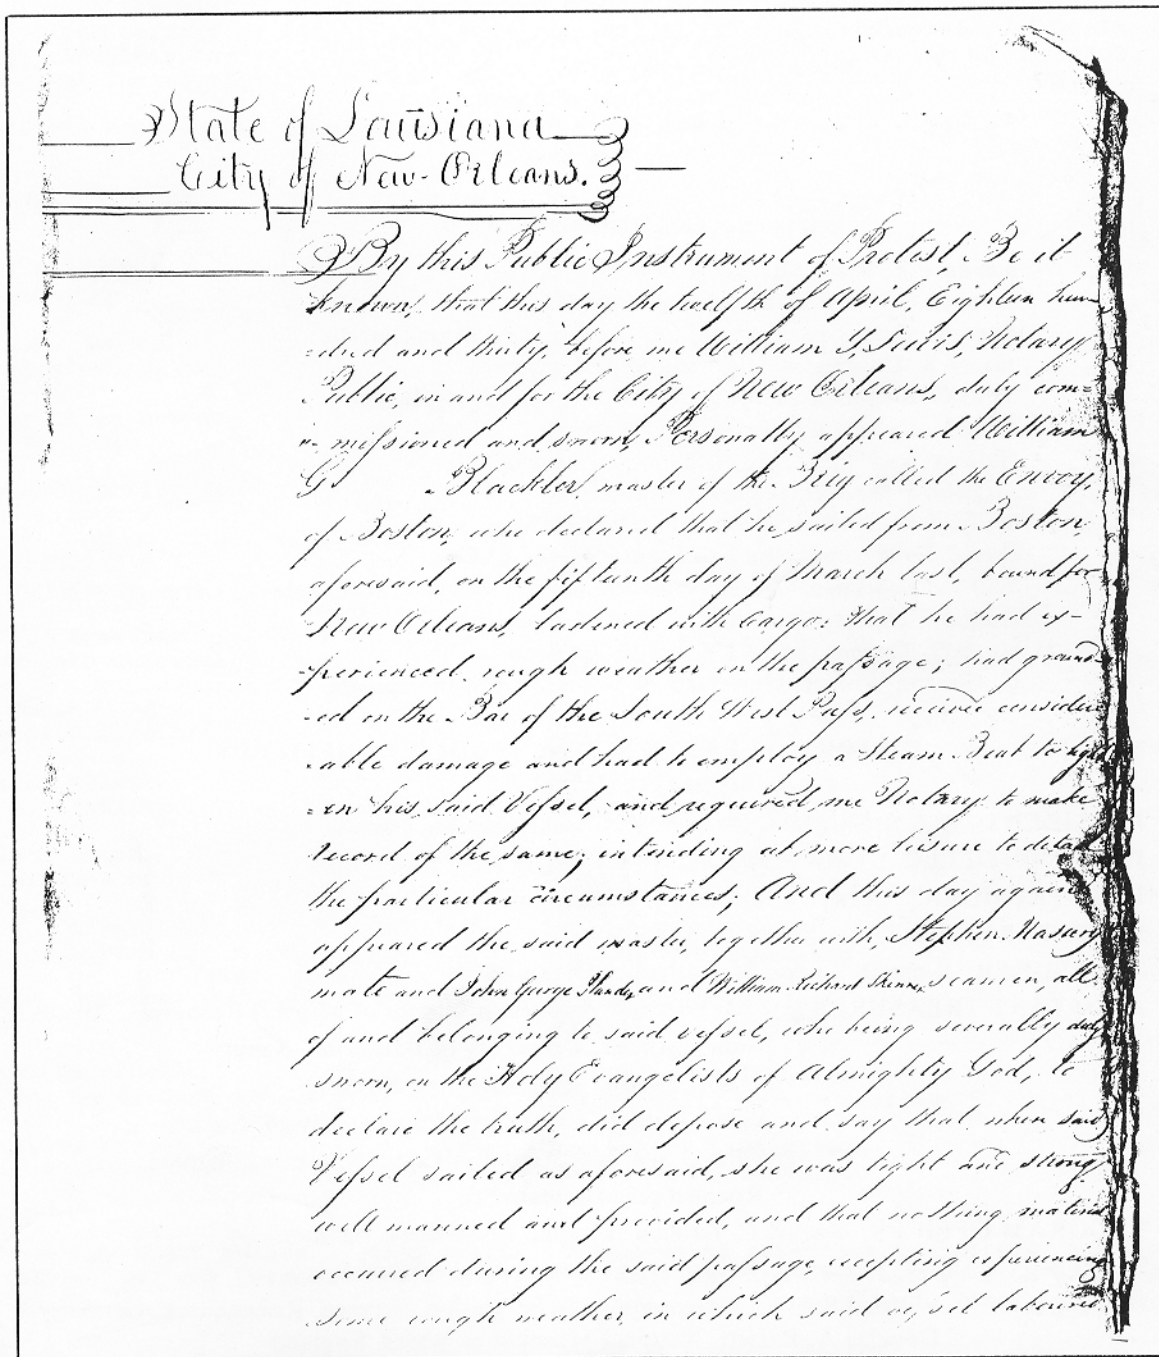 State of Louisiana
City of New-Orleans.
By this Public Instrument of Protest, Be it
known, that this day the twelfth of April, Eighteen hun-
=dred and thirty, before me William Y. Lewis, Notary
Public, in and for the City of New Orleans, duly com=
missioned and sworn, Personally appeared William
G. Blackler, master of the Brig called the Envoy,
of Boston, who declared that he sailed from Boston,
aforesaid, on the fifteenth day of March last, bound for
New Orleans, ladened with Cargo: that he had ex-
-perienced rough weather on the passage; had ground-
-ed on the Bar of the South West Pass, received consider
-able damage and had to employ a Steam Boat to light
=en his said Vessel, and required me Notary to make
record of the same; intending at more leisure to detail
the particular circumstances; And this day again
appeared the said master, together with, Stephen
mate and John George and William Richard Skinner, seamen, all
of and belonging to said vessel, who being severally duly
sworn, on the Holy Evangelists of Almighty God, to
declare the truth, did depose and say that when said
Vessel sailed as aforesaid, she was tight and strong
well manned and provided, and that nothing material
occurred during the said passage, excepting experiencing
some rough weather, in which said vessel laboured